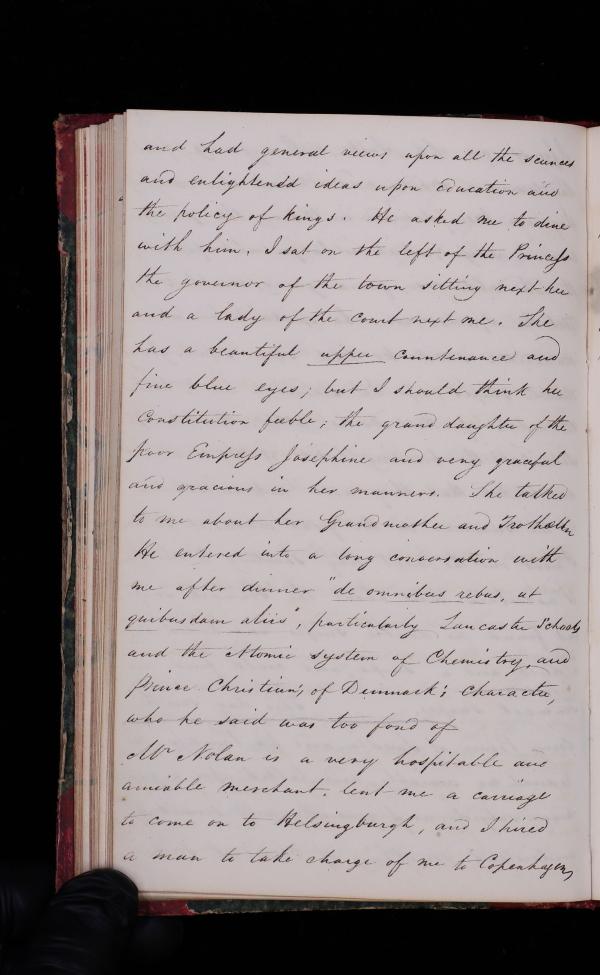 and had general views upon all the sciences
and enlighten'd ideas upon education and
the policy of kings. He asked me to dine
with him. I sat on the left of the Princess
the governor of the town sitting next her
and a lady of the court next me. She
has a beautiful upper countenance and
fine blue eyes; but I should think her
Constitution feeble; the grand daughter of the
poor Empress Josephine and very graceful
and gracious in her manners. She talked
to me about her Grandmother and
He entered into a long conversation with
me after dinner "de omnibus rebus, et
quibusdam aliis", particularly Lancaster Schools
and the Atomic system of Chemistry, and
Prince Christian's, of Denmark's character,
who he said was too fond of
Mr Nolan is a very hospitable and
amiable merchant. lent me a carriage
to come on to Helsingburgh, and I hired
a man to take charge of me to Copenhagen,